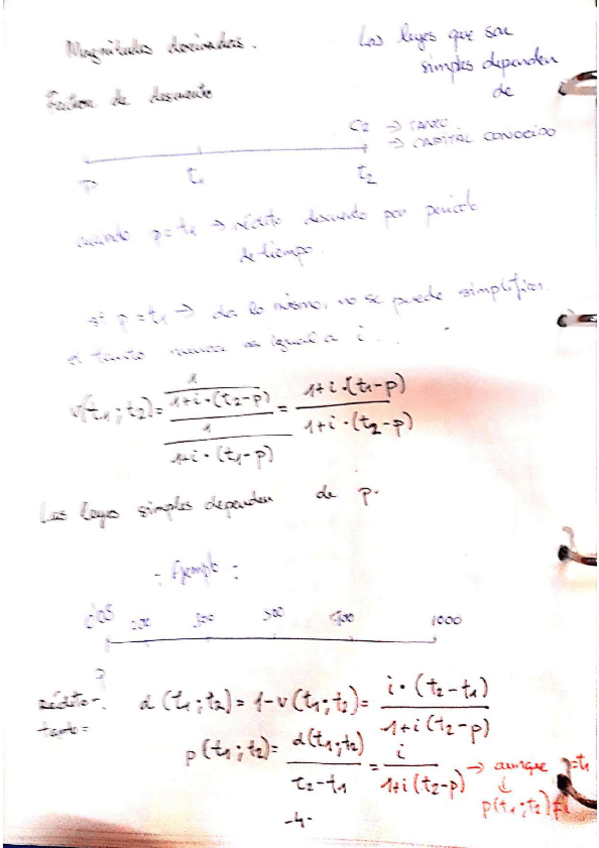 Magnitudes derivadas.
Las leyes que son
simples dependen
de
Factor de descuento
C2 → TANTO
→ CAPITAL CONOCIDO
p t1 t2
cuando p=t1 → rédito descuento por periodo
de tiempo.
si p=t1 → da lo mismo, no se puede simplificar.
el tanto nunca es igual a i.
v(t1;t2) = (1 / (1+i·(t2-p))) / (1 / (1+i·(t1-p))) = (1+i·(t1-p)) / (1+i·(t2-p))
Las leyes simples dependen de p.
- Ejemplo:
0'05 200 300 1000
?
rédito-
tanto=
d(t1;t2) = 1-v(t1;t2) = i·(t2-t1) / (1+i(t2-p))
p(t1;t2) = d(t1;t2) / (t2-t1) = i / (1+i(t2-p)) → aunque p=t1
↓
p(t1;t2)≠i
-4-